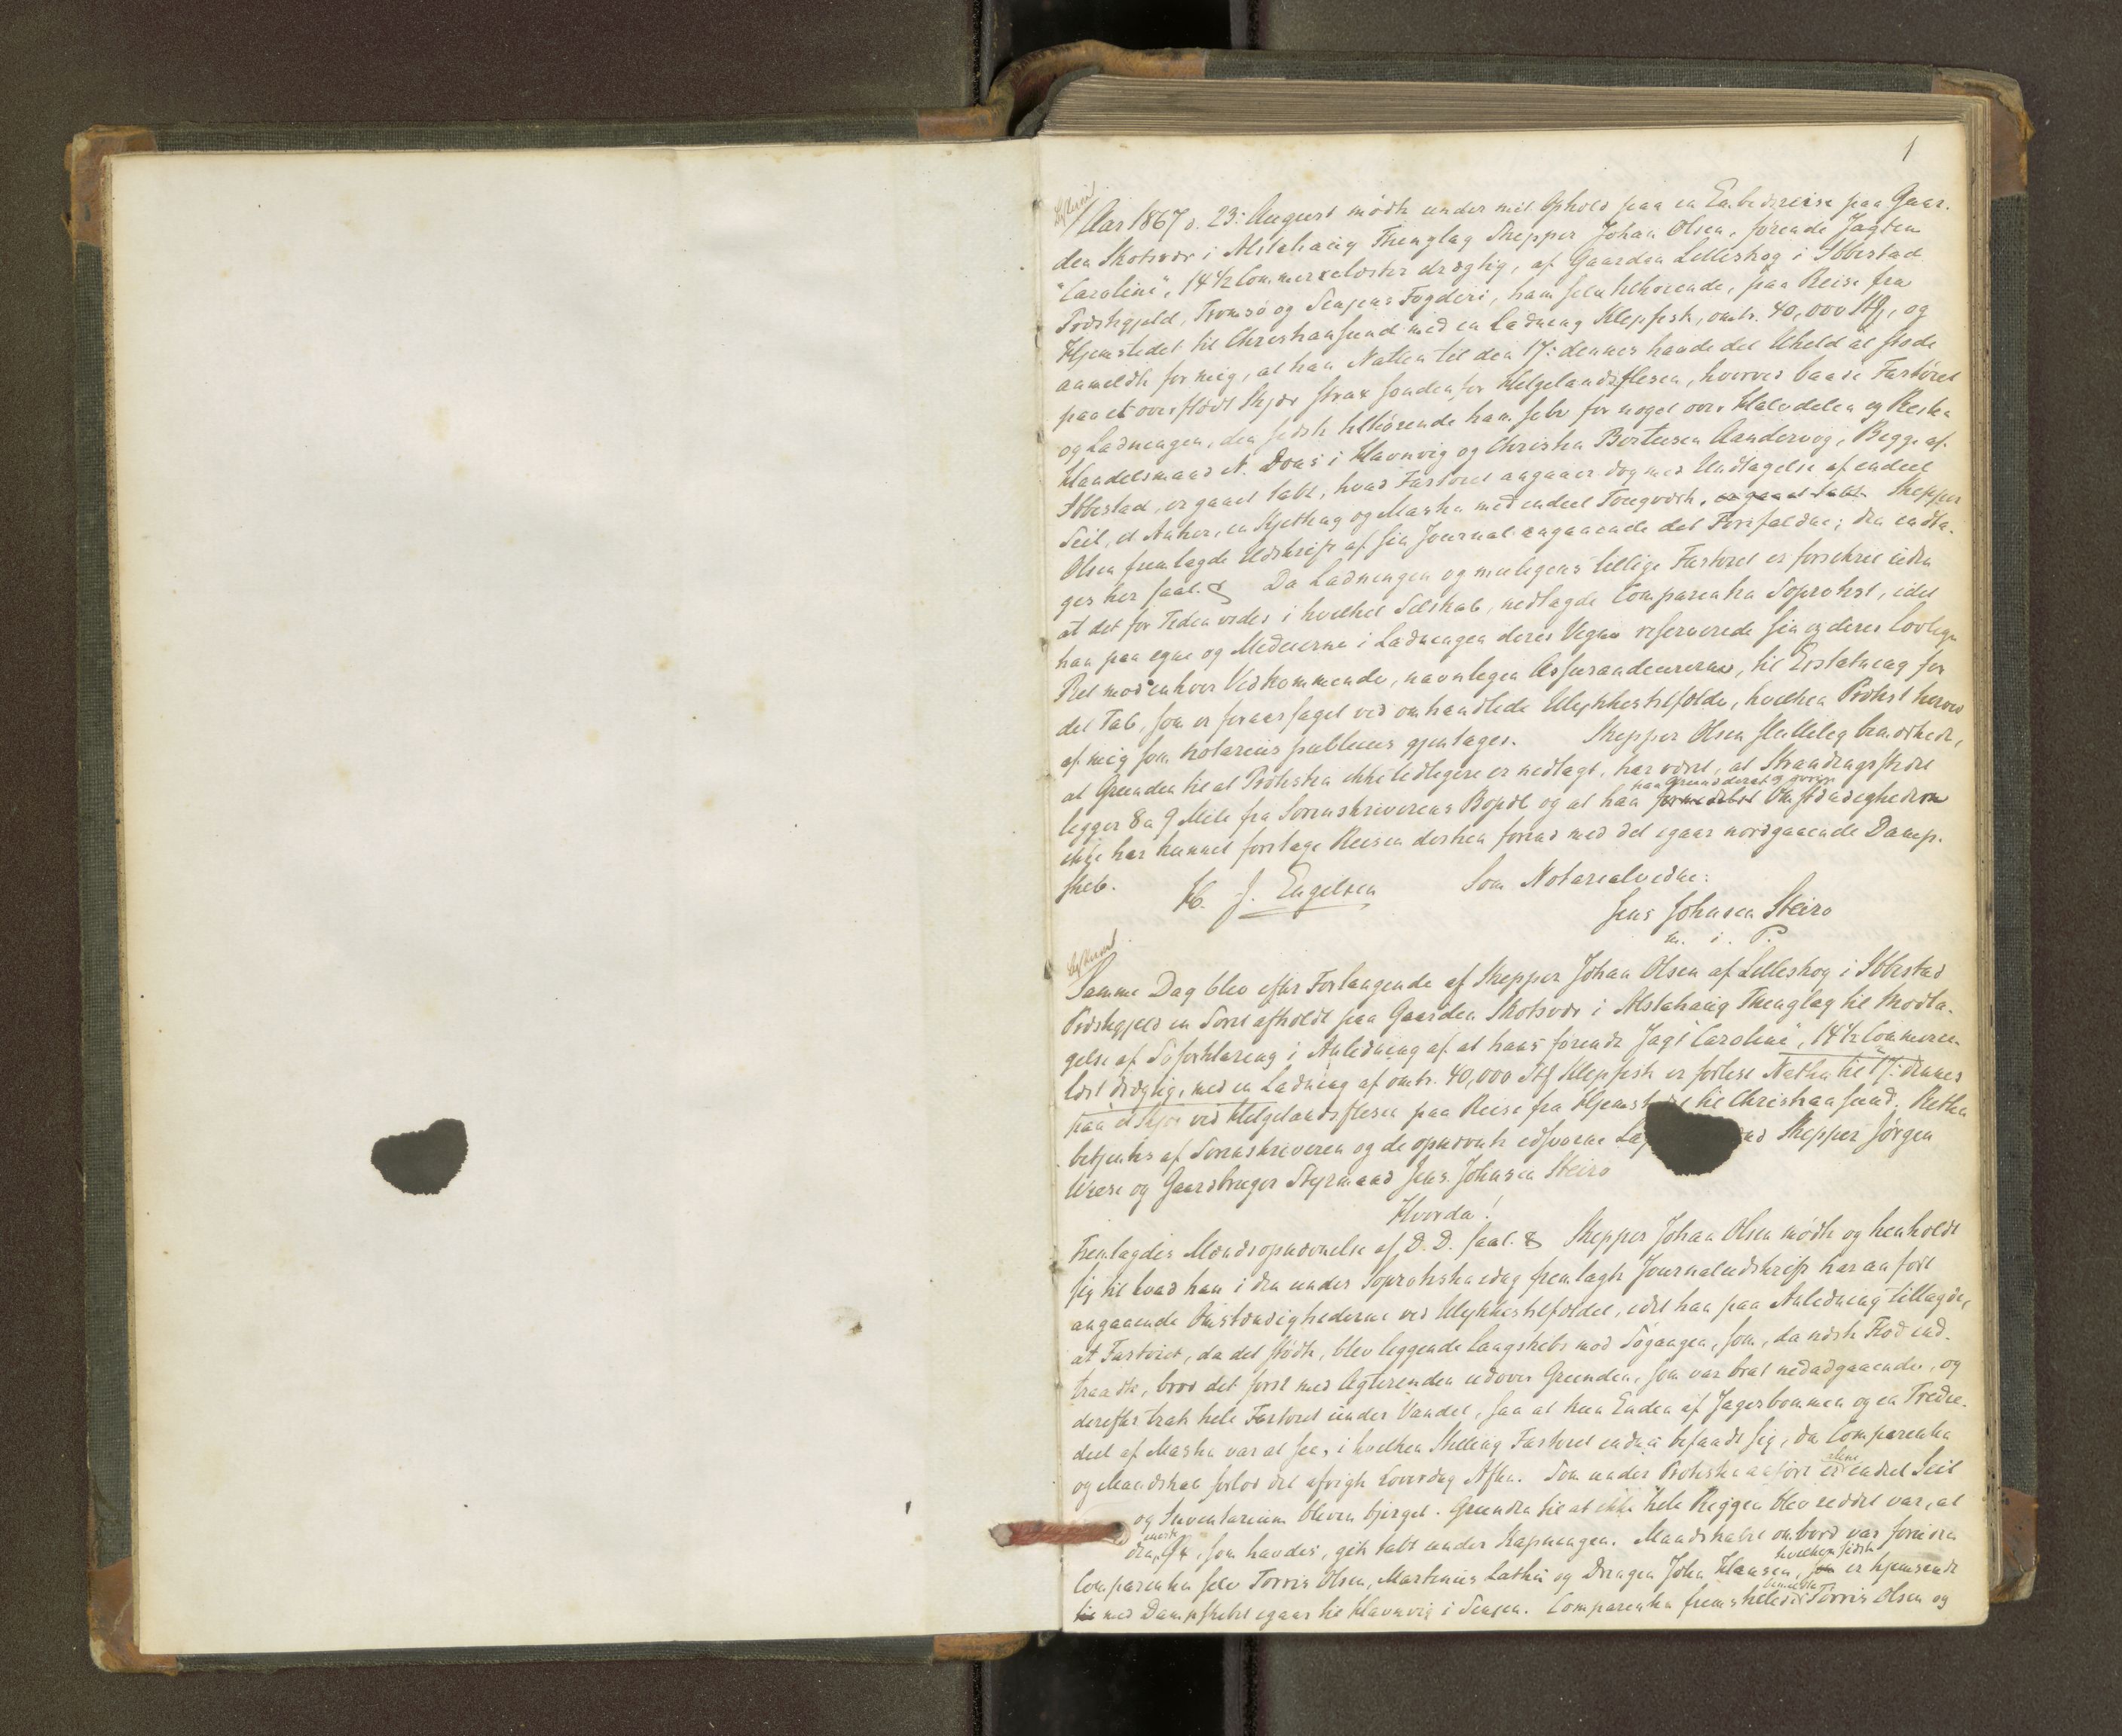 1
Aar 1867 d. 23: August mødte under mit Ophold paa en Embedsreise paa Gaar-
den Skotsvær i Alstahaug Thinglag Skipper Johan Olsen, førende Jagten
"Caroline", 14 1/2 Commercelæster drægtig, af Gaarden Lilleskog i Ibbestad
Præstegjeld, Tromsø og Senjens Fogderi, ham selv tilhørende, paa Reise fra
Hjemstedet til Christiansund med en Ladning Klipfisk, omtr. 40,000 St, og
anmeldte for mig, at han Natten til den 17: dennes havde det Uheld at støde
paa et overflødt Skjær strax søndenfor Helgelandsflesen, hvorved baade Fartøiet
og Ladningen, den sidste tilhørende ham selv for noget over Halvdelen og Resten
Handelsmand N. Dons i Havnvig og Christen Berteusen Aandervog, Begge af
Ibbestad, er gaaet tabt, hvad Fartøiet angaaer dog med Undtagelse af endeel
Seil, et Anker, en Kjetting og Masten med endeel Tougværk, er gaaet tabt. Skipper
Olsen fremlagde Udskrift af sin Journal angaaende det Forefaldne; den indta-
ges her saal. & Da Ladningen og muligens tillige Fartøiet er forsikret uden
at det for Tiden vides i hvilket Selskab, nedlagde Comparenten Søprotest, idet
han paa egne og Medeierne i Ladningen deres Vegne reserverede sin og deres lovlige
Ret mod enhver Vedkommende, navnligen Assurandeurerne, til Erstatning for
det Tab, som er foraarsaget ved omhandlede Ulykkestilfælde, hvilken Protest herved
af mig som notarius publicus gjentages. Skipper Olsen sluttelig bemærkede,
at Grunden til at Protesten ikke tidligere er nedlagt, har været, at Strandingsstedet
ligger 8 a 9 Mile fra Sorenskriverens Bopæl og at han formedelst Omstændighederne
ikke har kunnet foretage Reisen dertil forend med det igaar nordgaaende Damp-
skib. H. J. Engelsen Som Notarialvidne:
Jens Johnsen Steiro
m. i. P.
Samme Dag blev efter Forlangende af Skipper Johan Olsen af Lilleskog i Ibbestad
Præstegjeld en Søret afholdt paa Gaarden Skotsvær i Alstahaug Thinglag til Modta-
gelse af Søforklaring i Anledning af at hans førende Jagt "Caroline", 14 1/2 Commerce-
læst drægtig, med en Ladning af omtr. 40,000 St Klipfisk er forlist Natten til 17: dennes
paa et Skjær ved Helgelandsflesen paa Reise fra Hjemstedet til Christiansund. Retten
betjentes af Sorenskriveren og de opnævnte edsvorne Skipper Jørgen
og Gaardbruger Styrmand Jens Johnsen Steiro
Hvorda!
Fremlagdes Mændsopnævnelse af D. D. saal. & Skipper Johan Olsen mødte og henholdt
sig til hvad han i den under Søprotesten idag fremlagte Journaludskrift har anført
angaaende Omstændighederne ved Ulykkestilfældet, idet han paa Anledning tillagde,
at Fartøiet, da det stødte, blev liggende langskibs mod Søgangen, som, da næste Flod ind-
traadte, brød det først med Agterenden udover Grunden, som var brat nedadgaaende, og
derefter trak hele Fartøiet under Vandet, saa at kun Enden af Jagerbommen og en Tredie-
deel af Masten var at see, i hvilken Stilling Fartøiet endnu befandt sig, da Comparenten
og Mandskab forlod det afvigte Løverdag Aften. Som under Protesten anført er alene endeel Seil
og Inventarium bleven bjerget. Grunden til at ikke hele Riggen blev reddet var, at
den eneste Øx, som havdes, gik tabt under Kapningen. Mandskabet ombord var foruden
Comparenten selv Torris Olsen, Martinus Lathi og Drengen John Hansen, hvilken sidste er hjemsendt
med Dampskibet igaar til Havnvig i Senjen. Comparenten fremstillede bemeldte Torris Olsen og